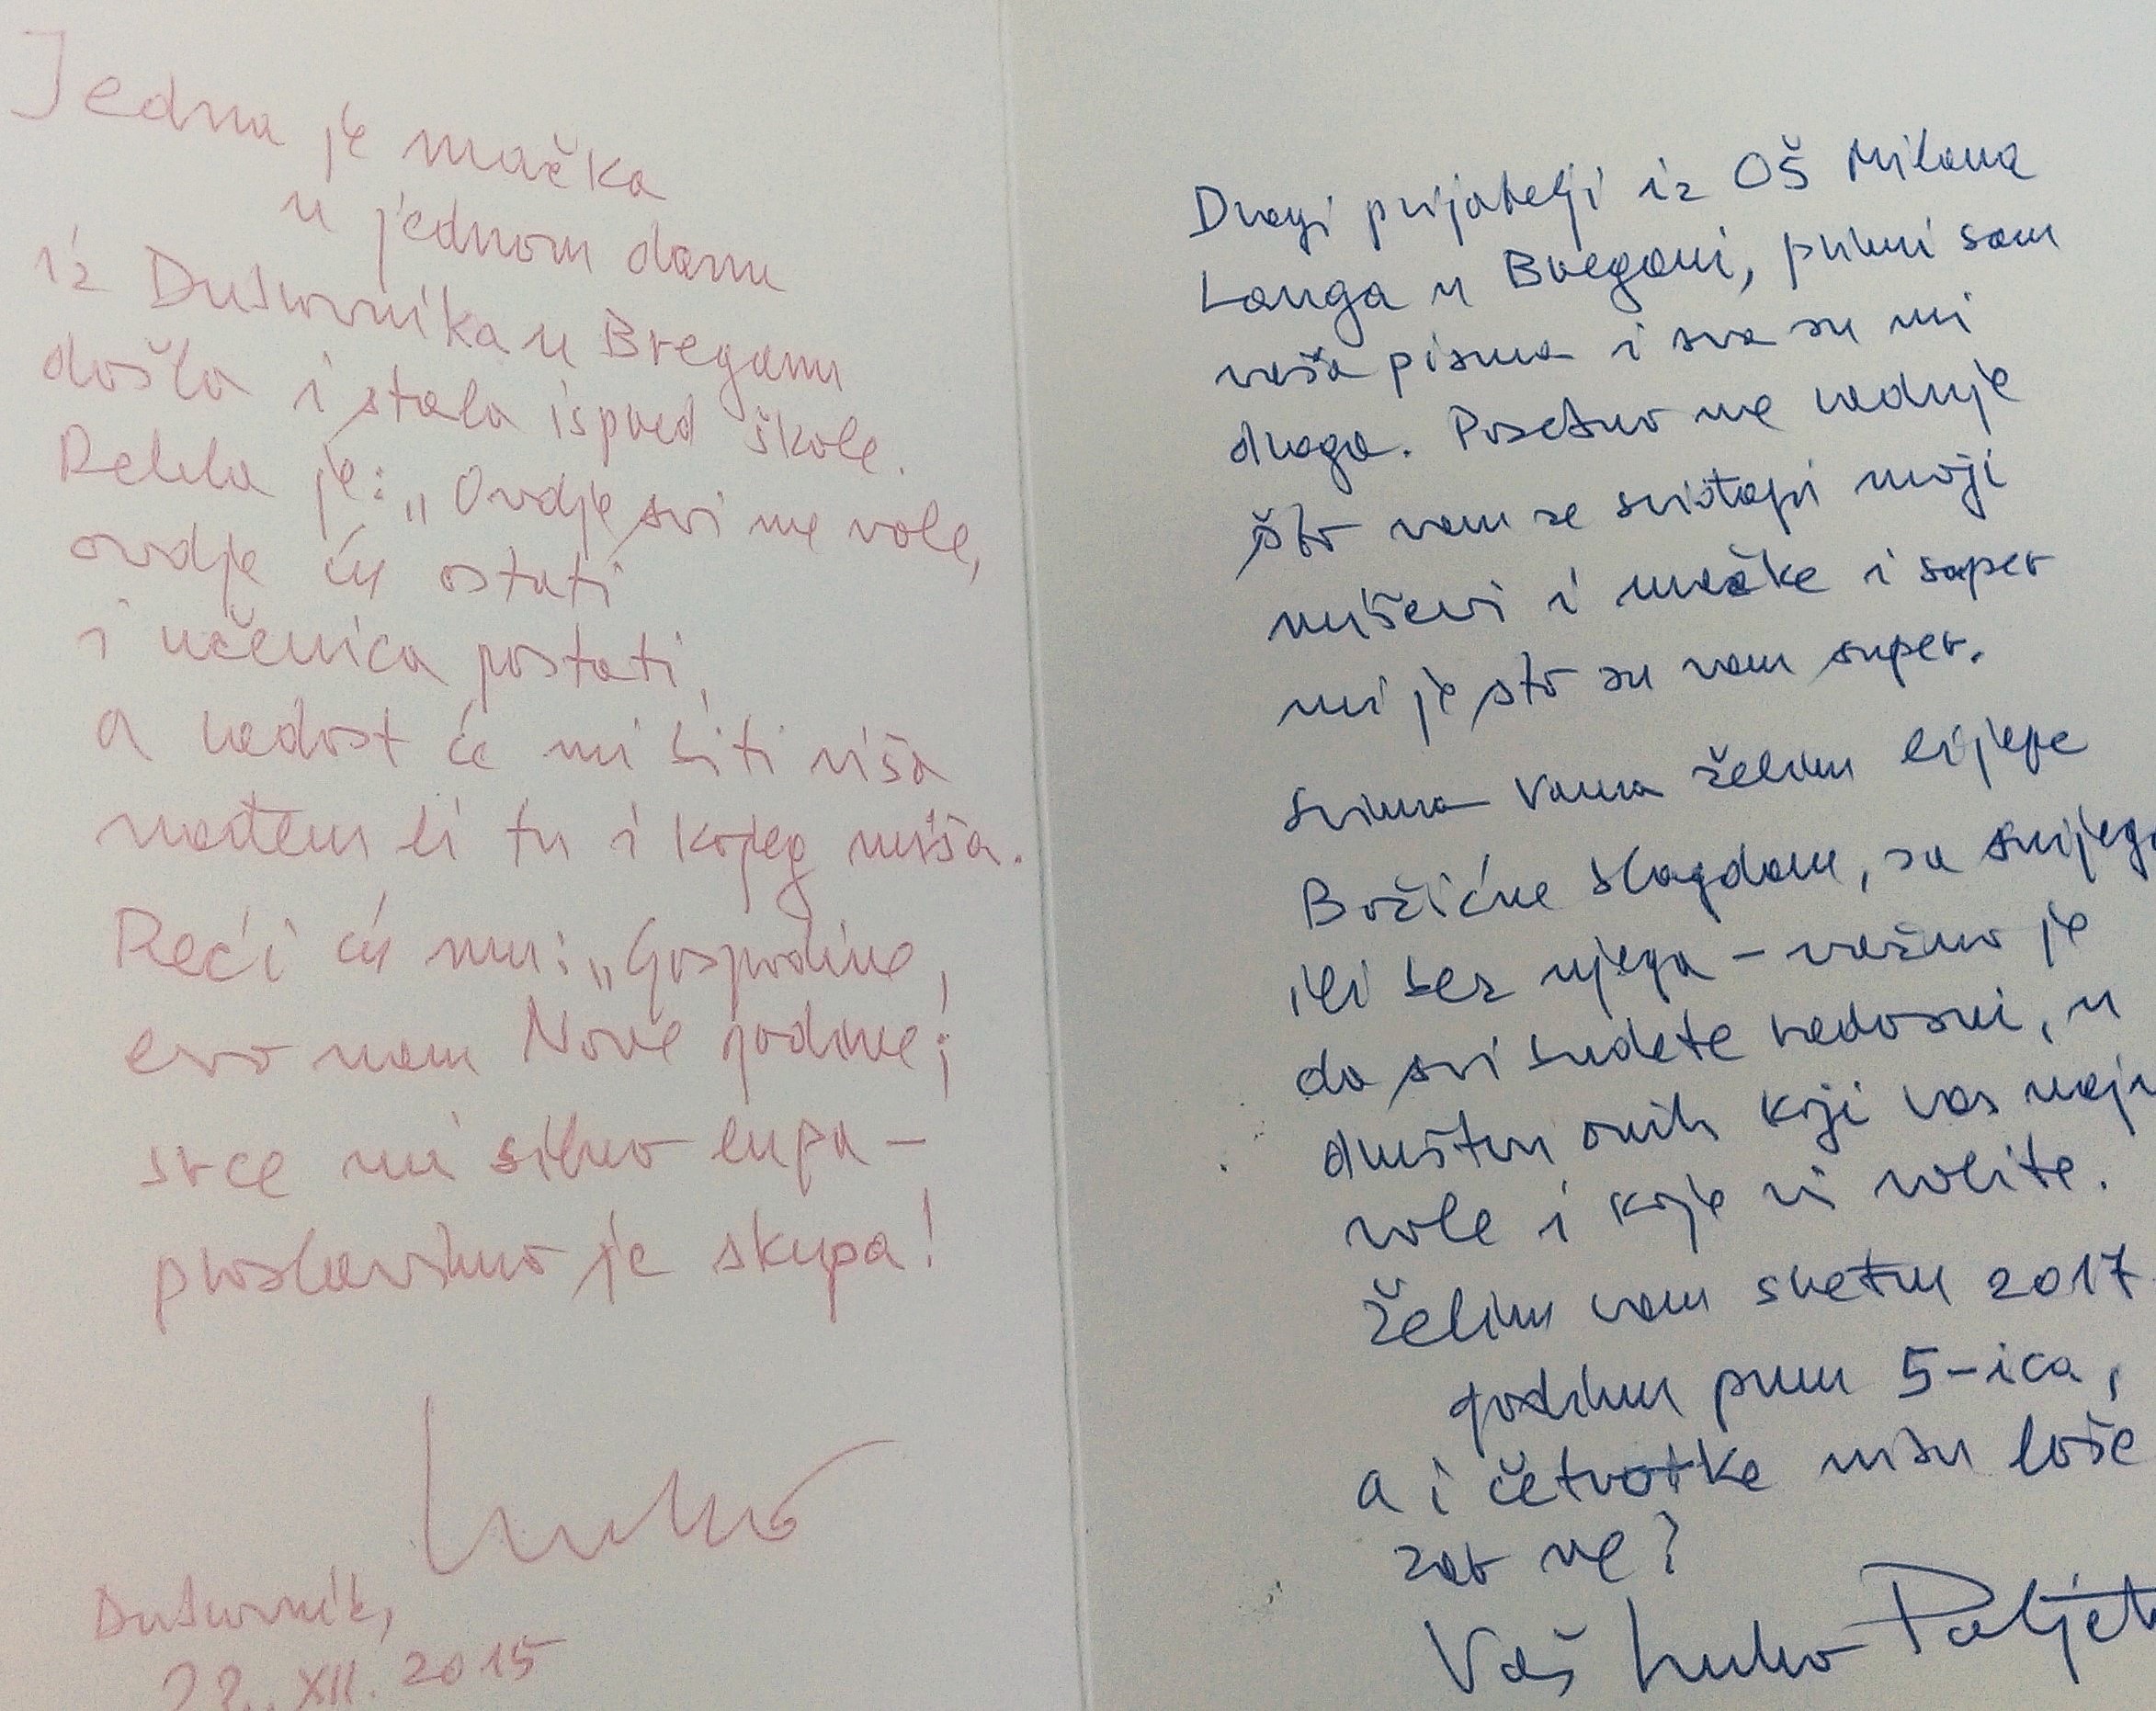 Jedna je mačka
u jednom danu
iz Dubrovnika u Breganu
došla i stala ispred škole.
Rekla je: „Ovdje svi me vole,
ovdje ću ostati
i učenica postati,
a radost će mi biti viša
nađem li tu i kojeg miša.
Reći ću mu: „Gospodine,
evo nam Nove godine;
srce mi silno lupa –
proslavimo je skupa!
Luko
Dubrovnik,
22. XII. 2015
Dragi prijatelji iz OŠ Milana
Langa u Bregani, primi sam
vaša pisma i sva su mi
draga. Posebno me raduje
što vam se sviđaju moji
miševi i mačke i super
mi je što su vam super.
Svima Vama želim lijepe
Božićne blagdane, sa snijego
ili bez njega – važno je
da svi budete radosni, u
društvu onih koji vas najv
vole i koje vi volite.
Želim vam sretnu 2017.
godinu punu 5-ica,
a i četvorke nisu loše
zar ne?
Vaš Luko Paljet